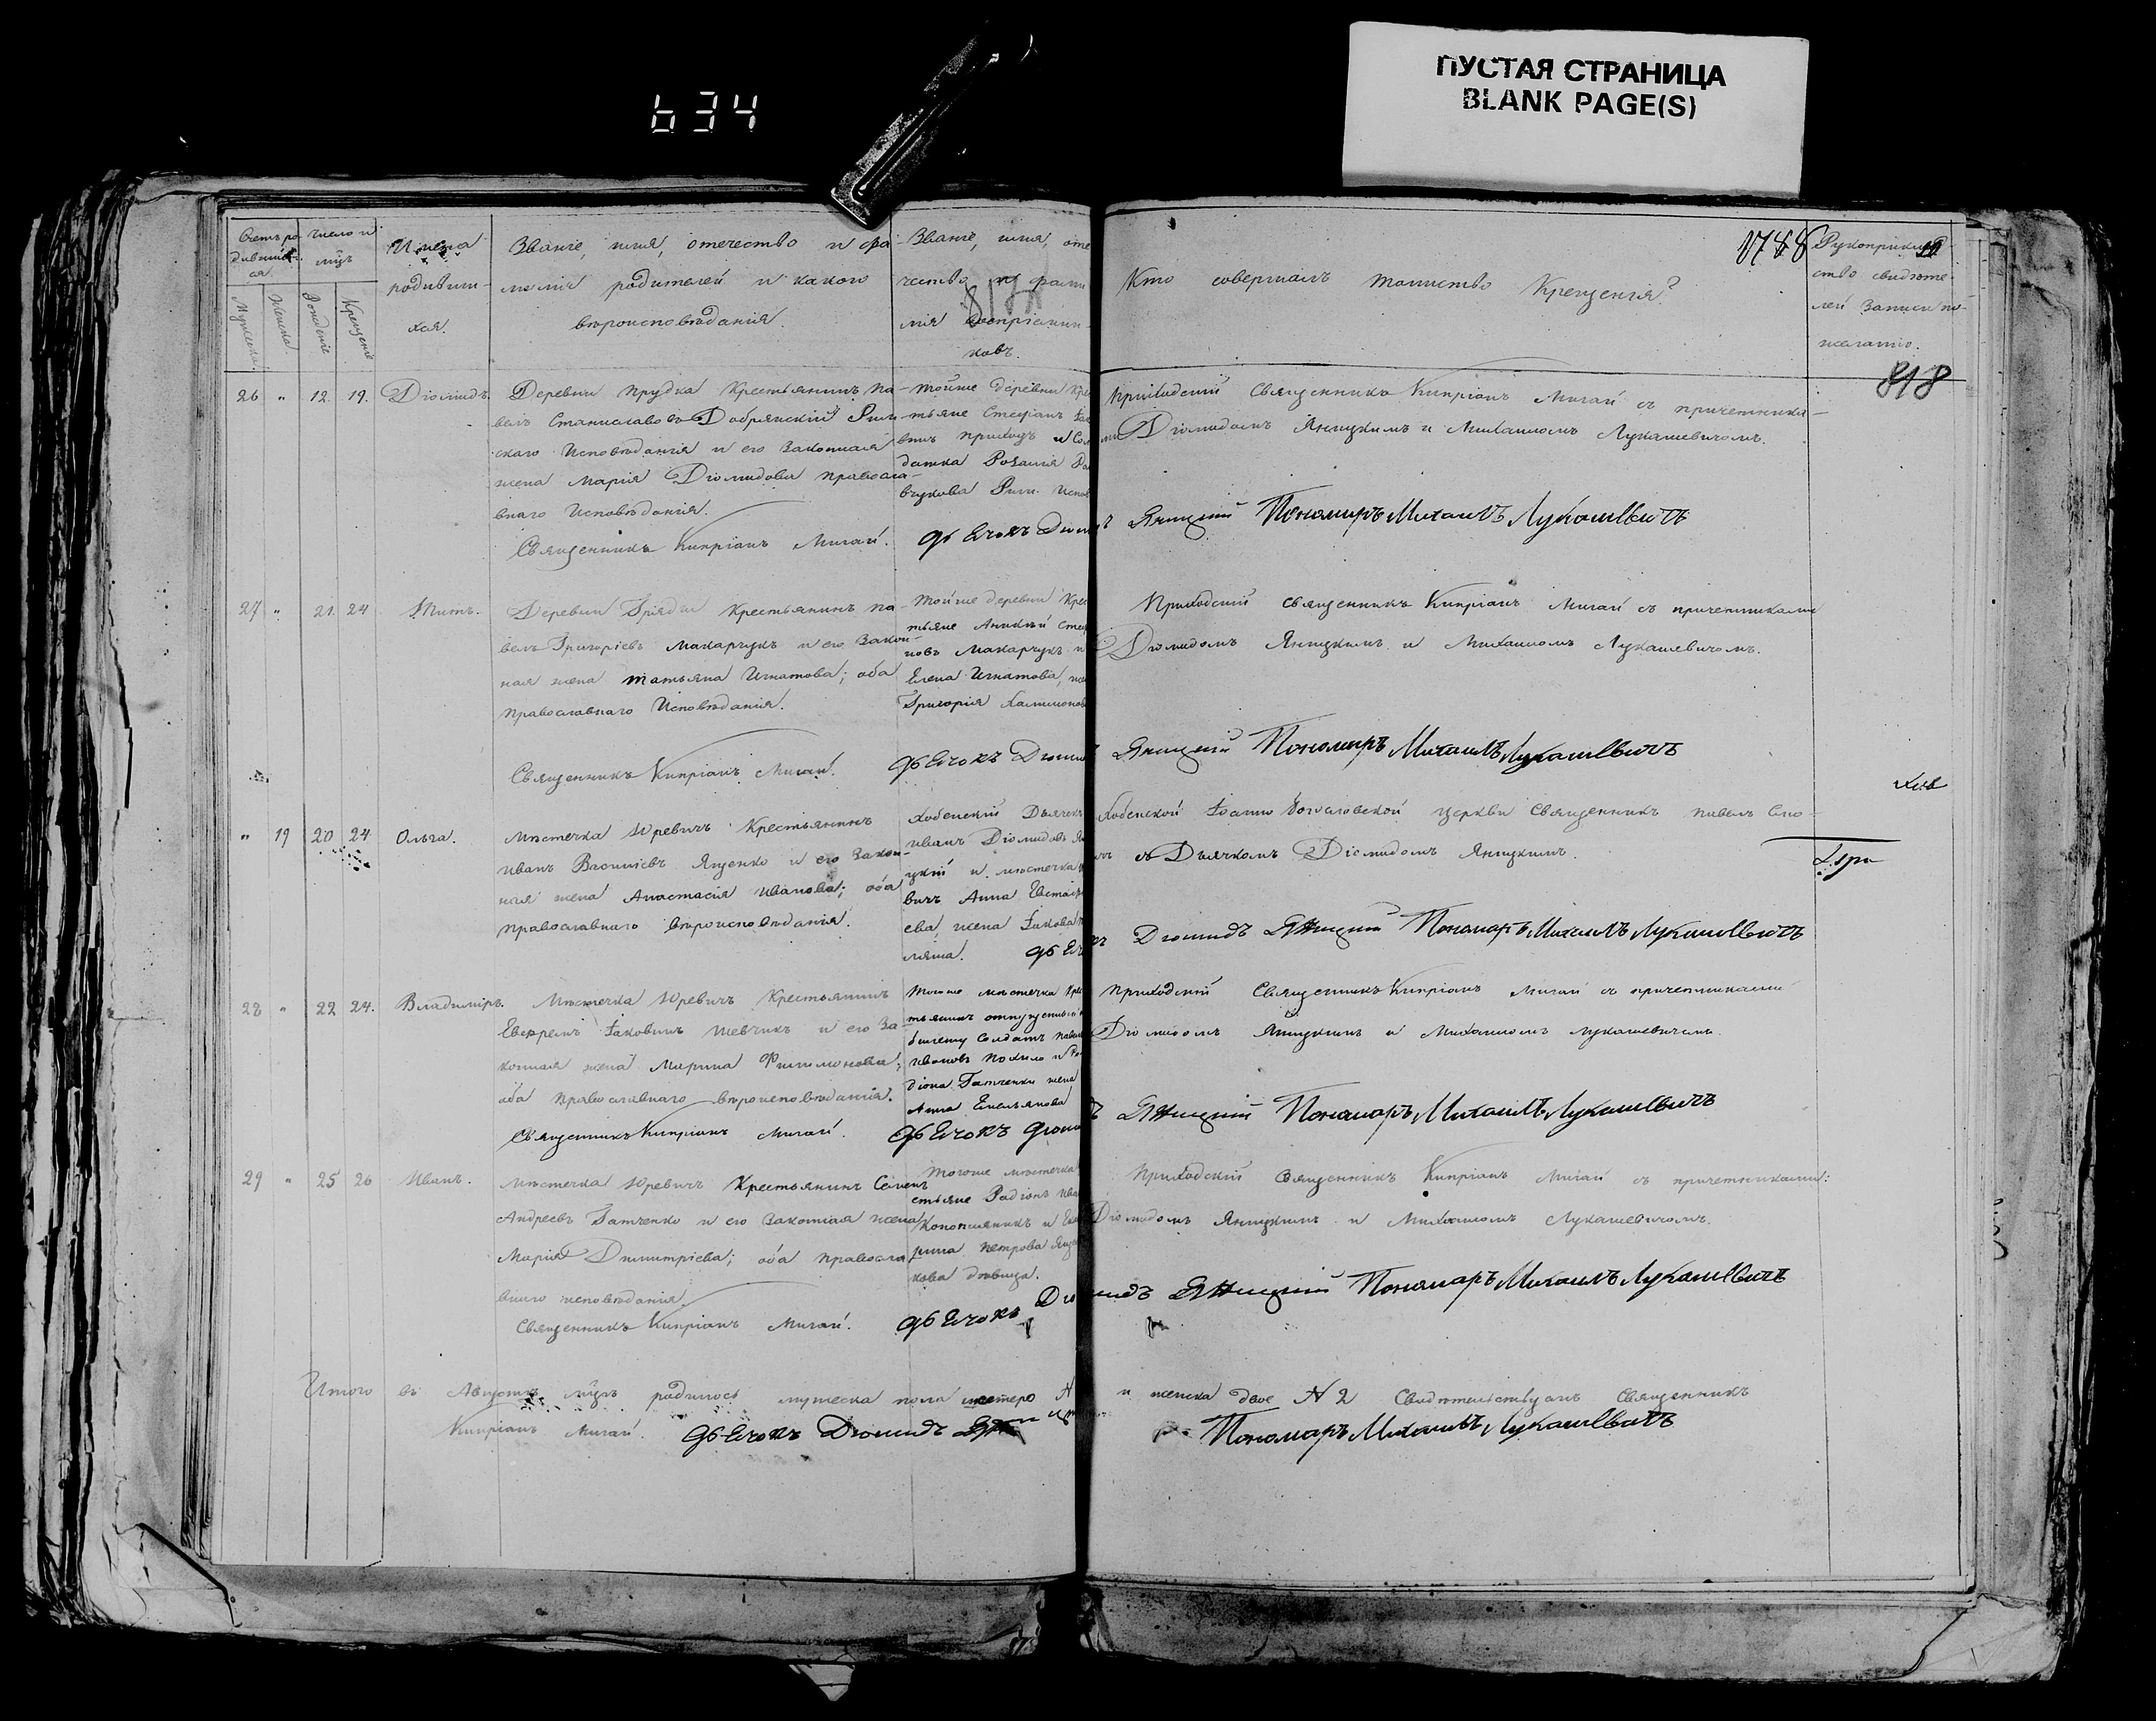 634
ПУСТАЯ СТРАНИЦА
BLANK PAGE(S)
Счетъ ро-
дивших-
ся.
число и
мцъ
Мужеска.
Женска.
Рожденіе
Крещеніе
Имена
родивши-
хся.
Званіе, имя, отечество и фа-
милія родителей и какого
вѣроисповѣданія.
Званіе, имя, оте
чество и фами
лія воспріемни-
ковъ.
Кто совершалъ таинство Крещенія?
Рукоприклад
ство свидѣте-
лей записи по
желанію.
818
26 " 12. 19. Діомидъ.
Деревни Прудка Крестьянинъ Па-
велъ Станиславовъ Добрянскій Рим
скаго Исповѣданія и его законная
жена Марія Діомидова православ-
внаго Исповѣданія.
Священникъ Кипріанъ Мигай.
Тойже деревни Кре
стьяне Стефанъ
датка Розалія
Рим. Испов
Дьячокъ Діоми
Приходскій Священникъ Кипріанъ Мигай съ причетника-
ми Діомидомъ Яницкимъ и Михаиломъ Лукашевичомъ.
Яницкій Пономаръ Михаилъ Лукашевичъ
27 " 21. 24 Титъ.
Деревни Гряды Крестьянинъ Па-
велъ Григоріевъ Макарчукъ и его закон-
ная жена Татьяна Игнатова; оба
Православнаго Исповѣданія.
Священникъ Кипріанъ Мигай.
Тойже деревни Крес
тьяне Аникѣй Стеф
новъ Макарчукъ и
Елена Игнатова, же
Григорія
Дьячокъ Діоми
Приходскій Священникъ Кипріанъ Мигай съ причетниками
Діомидомъ Яницкимъ и Михаиломъ Лукашевичомъ.
Яницкій Пономаръ Михаилъ Лукашевичъ
" 19 20 24 Ольга.
Мѣстечка Юревичъ Крестьянинъ
Иванъ Василіевъ Яценко и его закон-
ная жена Анастасія Иванова; оба
Православнаго вѣроисповѣданія.
Хобенскій Дьячекъ
Иванъ Діомидовъ Я
цкій и мѣстечка
вичъ Анна Евстафі
ева жена Іакова
ляша.
Дьяч
Хобенской Іоанно Богословской Церкви Священникъ Павелъ
съ Дьячкомъ Діомидомъ Яницкимъ.
Діомидъ Яницкій Пономаръ Михаилъ Лукашевичъ
28 " 22 24. Владиміръ.
Мѣстечка Юревичъ Крестьянинъ
Евфремъ Іаковинъ Шевчикъ и его за
конная жена Марина Филимонова;
оба Православнаго вѣроисповѣданія.
Священникъ Кипріанъ Мигай.
Тогоже мѣстечка Крес
тьянинъ отпущенный
солдатъ Павелъ
Ивановъ Похило и Ро
діона Гатченки жена
Анна Емельянова
Дьячокъ Діоми
Приходскій Священникъ Кипріанъ Мигай съ причетниками
Діомидомъ Яницкимъ и Михаиломъ Лукашевичомъ.
Яницкій Пономаръ Михаилъ Лукашевичъ
29 " 25 26 Иванъ.
Мѣстечка Юревичъ Крестьянинъ Семенъ
Андреевъ Гатченко и его законная жена
Марія Димитріева; оба православ
внаго исповѣданія.
Священникъ Кипріанъ Мигай.
Тогоже мѣстечка
стьяне Радіонъ Ива
Конопляникъ и Ека
рина Петрова Яце
кова дѣвица.
Дьячокъ Діомидъ Яницкій Пономаръ Михаилъ Лукашевичъ
Приходскій Священникъ Кипріанъ Мигай съ причетниками:
Діомидомъ Яницкимъ и Михаиломъ Лукашевичомъ.
Итого въ Августѣ мцѣ родилось мужеска пола и женска двое № 2 Свидѣтельствуемъ Священникъ
Кипріанъ Мигай. Дьячокъ Діомидъ Пономаръ Михаилъ Лукашевичъ